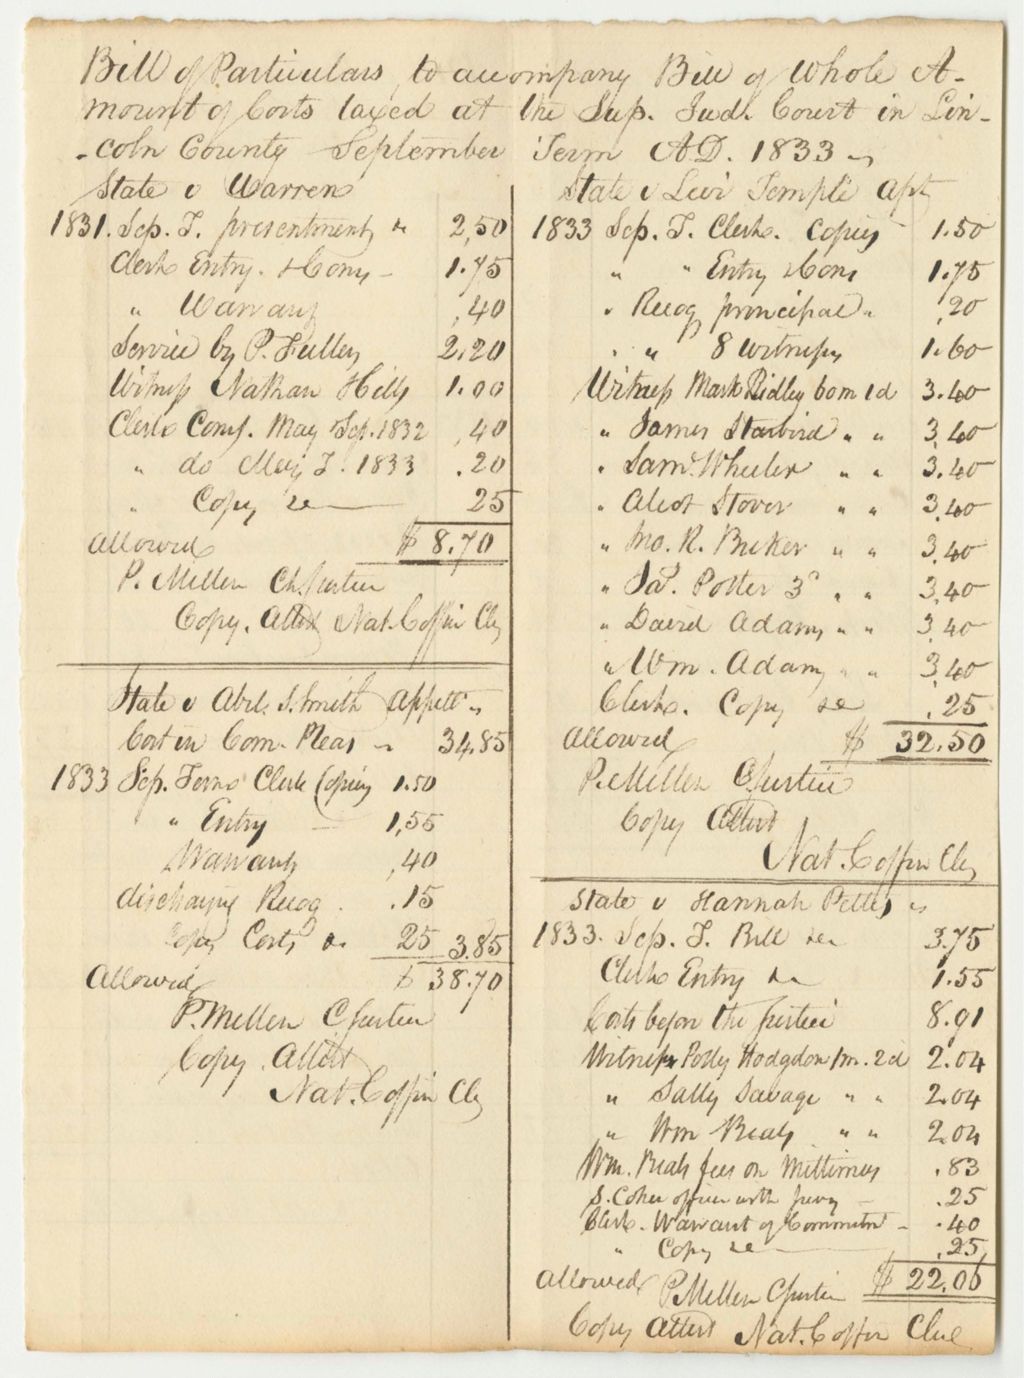 Bill of Particulars to accompany Bill of Whole A-
mount of Costs taxed at the Sup. Jud. Court in Lin-
-coln County September Term A.D. 1833
State v Warren
1831. Sep. T. presentment 2,50
Clerk Entry. & Cons 1.75
" Warrant ,40
Service by P. Fuller 2.20
Witness Nathan Hills 1.00
Clerks Cons. May & Sep. 1832 ,40
" do May T. 1833 .20
" Copy &c 25
Allowed $ 8.70
P. Mellen Ch. Justice
Copy. Attest Nat. Coffin Clk
State v Abel S. Smith Appellt
Cost in Com. Pleas 34.85
1833 Sep. Term Clerk Copies 1.50
" Entry 1,55
Warrant ,40
discharging Recog .15
Copy Costs &c 25 3.85
Allowed $ 38.70
P. Mellen C Justice
Copy Attest
Nat. Coffin Clk
State v Levi Temple Apt
1833 Sep. T. Clerk. Copies 1.50
" " Entry & Cons 1.75
" Recog principal " .20
" " 8 witnesses 1.60
Witness Mark Ridley 60 m 1 d 3.40
" James Starbird " " 3,40
" Saml. Wheeler " " 3.40
" Alcot Stover " " 3.40
" Jno. R. Bricker " " 3.40
" Jas. Potter 3d " " 3.40
" David Adams " " 3.40
" Wm. Adams " " 3.40
Clerks. Copy &c .25
Allowed $ 32.50
P. Mellen C Justice
Copy Attest
Nat. Coffin Clk
State v Hannah Pettes
1833. Sep. T. Bill &c 3.75
Clerk Entry &c 1.55
Costs before the justice 8.91
Witness Polly Hodgdon 1 m. 2 d 2.04
" Sally Savage " " 2.04
" Wm Beals " " 2.04
Wm. Beals fees on Mittimus .83
S. Coker officer with jury .25
Clerk. Warrant of Commitmt .40
" Copy &c .25
Allowed P. Mellen C Justice $ 22.06
Copy Attest Nat. Coffin Clk